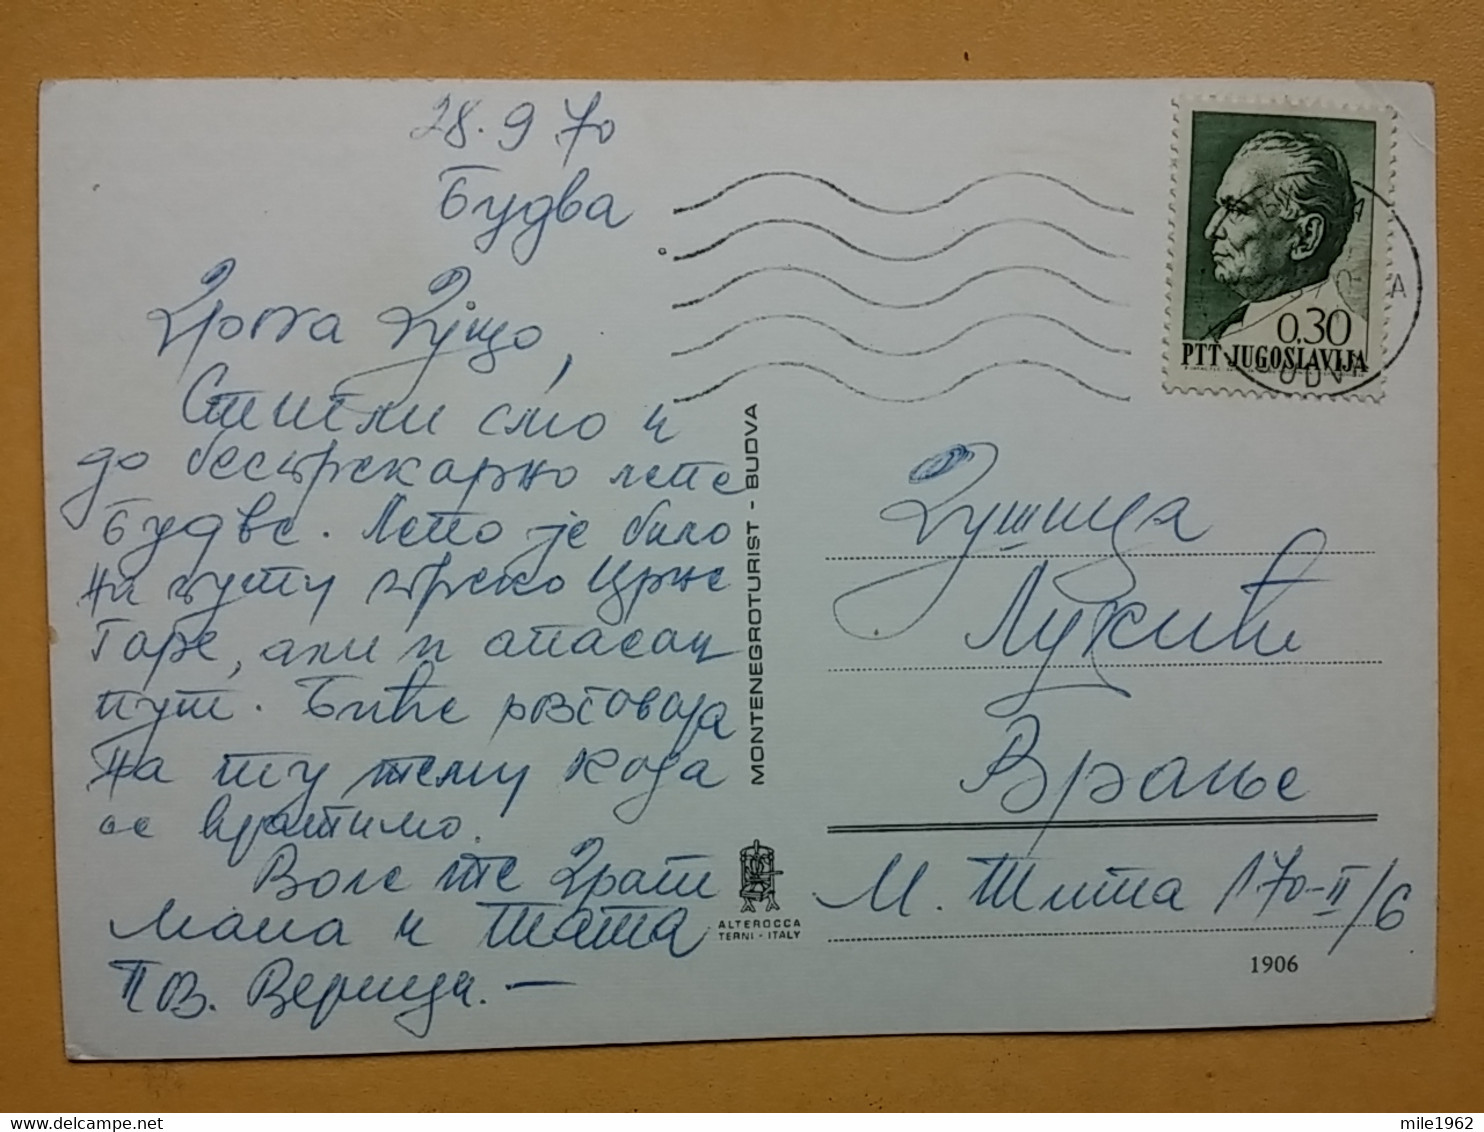 28.9 70
Будва
Драга Дуцо,
Стигли смо и
до бесprekорно лепе
Будве. Лепо је било
на путу преко Црне
Горе, али и опасан
пут. Биће разговора
на ту тему када
се вратимо.
Воле те
мама и тата
Поз. Верица. —
MONTENEGROTURIST - BUDVA
ALTEROCCA
TERNI - ITALY
0.30
PTT JUGOSLAVIJA
Душица
Лукић
Врање
М. Тита 170-II/6
1906
mile1962